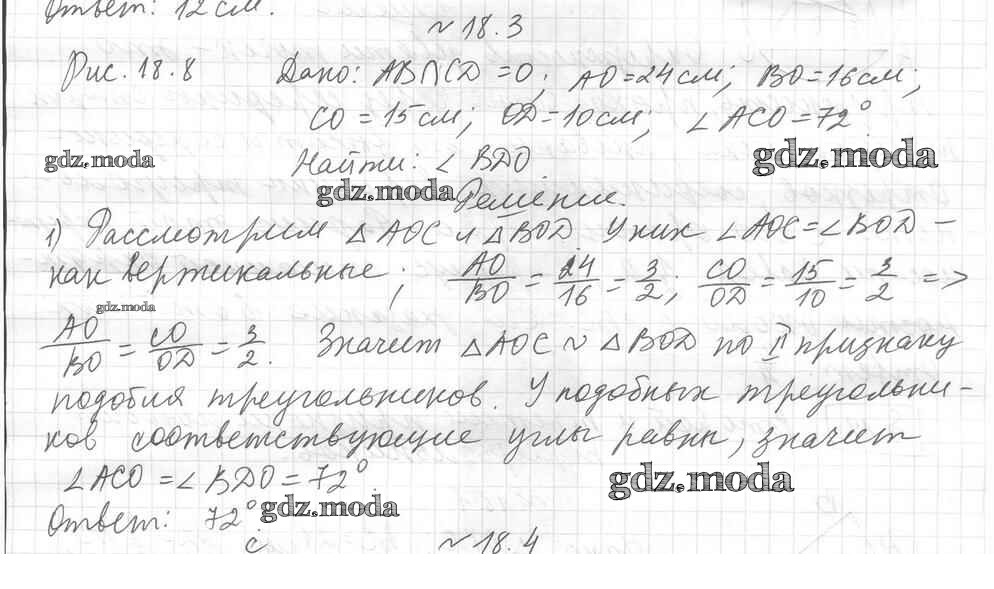 Ответ: 12 см.
~ 18.3
Рис. 18.8 Дано: AB∩CD = O; AO = 24 см; BO = 16 см;
CO = 15 см; OD = 10 см; ∠ACO = 72°.
gdz.moda
Найти: ∠BDO
gdz.moda
gdz.moda
Решение.
1) Рассмотрим △AOC и △BOD. У них ∠AOC = ∠BOD –
как вертикальные; AO/BO = 24/16 = 3/2; CO/OD = 15/10 = 3/2 =>
gdz.moda
AO/BO = CO/OD = 3/2. Значит △AOC ~ △BOD по II признаку
подобия треугольников. У подобных треугольни-
ков соответствующие углы равны, значит
∠ACO = ∠BDO = 72°.
gdz.moda
Ответ: 72°
gdz.moda
~ 18.4